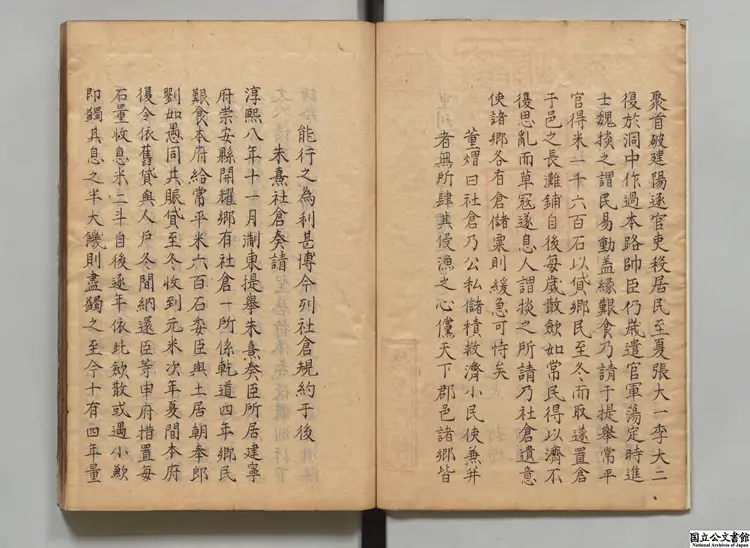 聚首破建陽逐官吏殺居民至夏張大一李大二
復於洞中作過本路帥臣仍歲遣官軍蕩定時進
士魏掞之謂民易動盖緣艱食乃請于提舉常平
官得米一千六百石以貸鄉民至冬而取遂置倉
于邑之長灘鋪自後每歲散斂如常民得以濟不
復思亂而草冦遂息人謂掞之所請乃社倉遺意
使諸鄉各有倉儲粟則緩急可恃矣
董熠曰社倉乃公私儲積救濟小民使兼并
者無所肆其侵漁之心儻天下郡邑諸鄉皆
能行之為利甚博今列社倉規約于後
朱熹社倉奏請
淳熙八年十一月淛東提舉朱熹奏臣所居建寧
府崇安縣開耀鄉有社倉一所係乾道四年鄉民
艱食本府給常平米六百石委臣與土居朝奉郎
劉如愚同共賑貸至冬收到元米次年夏間本府
復令依舊貸與人戶冬間納還臣等申府措置每
石量收息米二斗自後逐年依此斂散或遇小歉
即蠲其息之半大饑則盡蠲之至今十有四年量
国立公文書館
National Archives of Japan